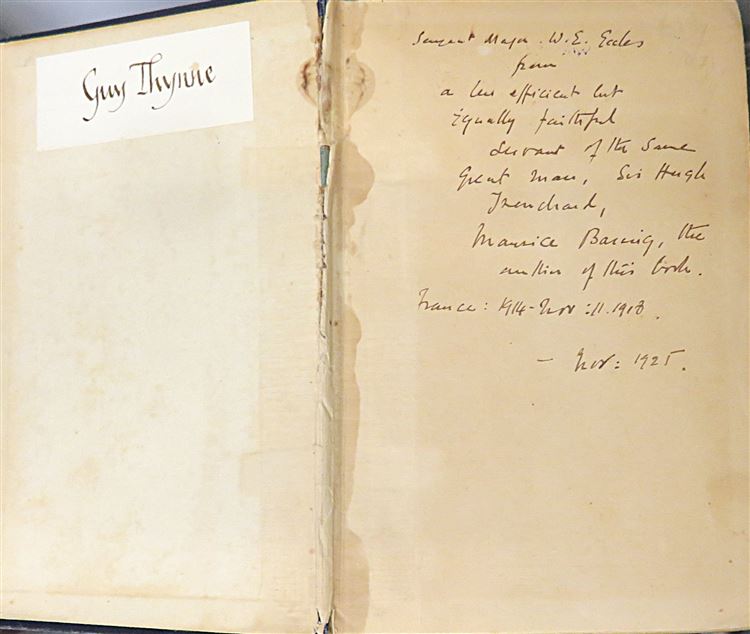 Guy Thynne
Sergeant Major W.E. Eccles
from
a less efficient but
Equally faithful
servant of the same
Great man, Sir Hugh
Trenchard,
Maurice Baring, the
author of this book.
France: 1914 - Nov: 11. 1918.
- Nov: 1925.